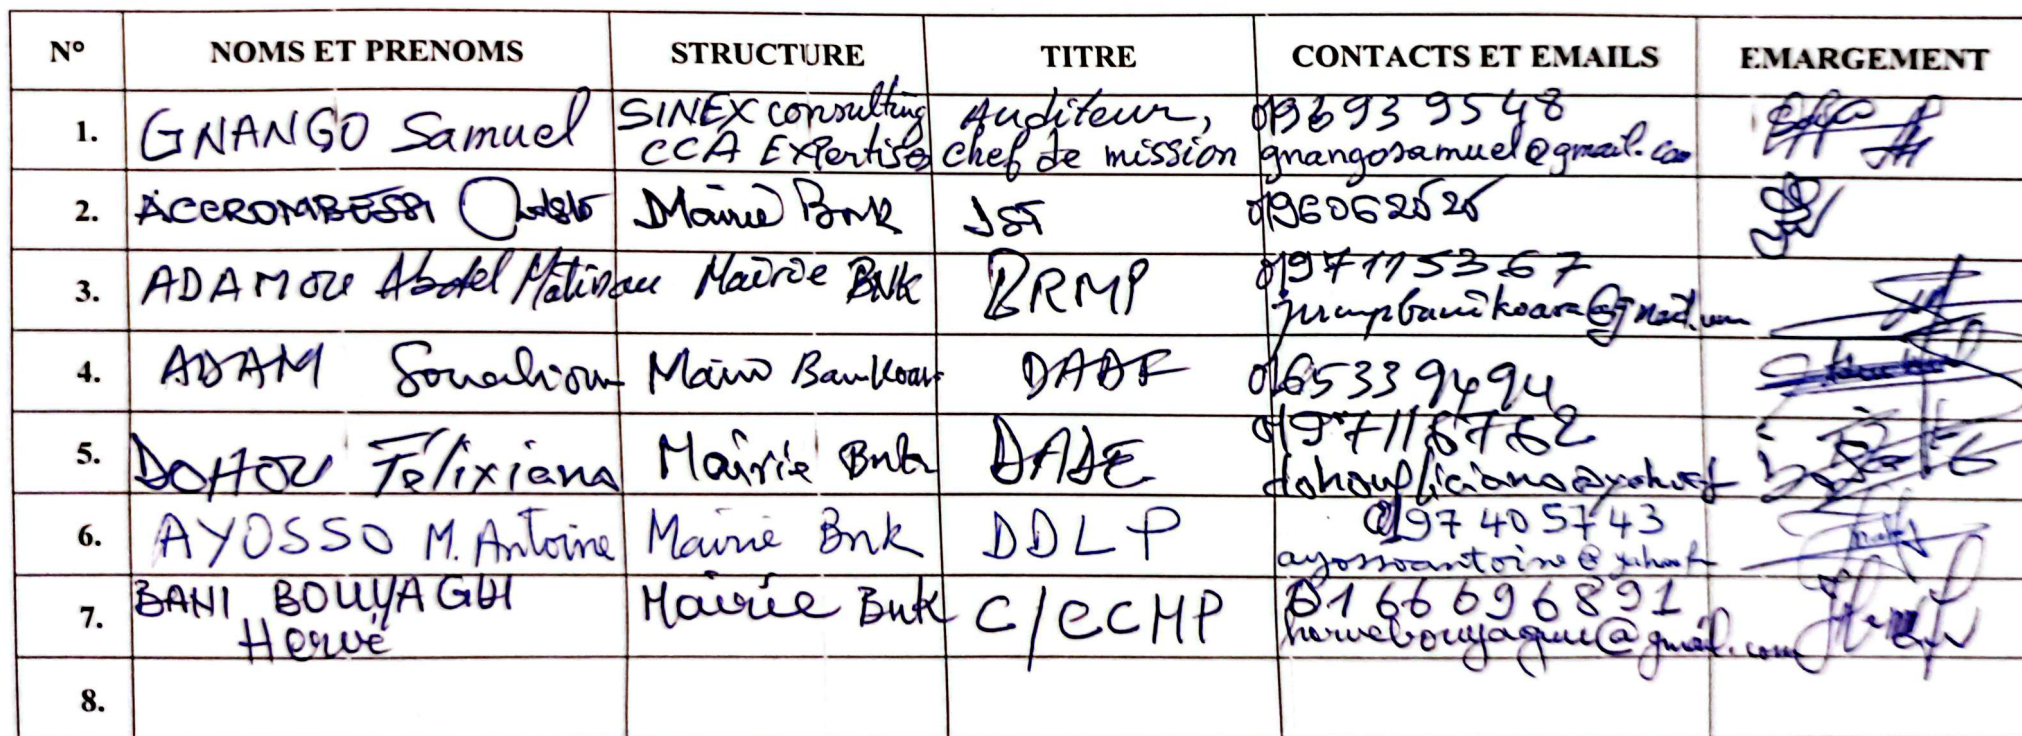 N° NOMS ET PRENOMS STRUCTURE TITRE CONTACTS ET EMAILS EMARGEMENT
1. GNANGO Samuel SINEX consulting CCA Expertises Auditeur, chef de mission 0196939548 gnangosamuel@gmail.com
2. ACCROMBESSI Mairie Bnk 0196062525
3. ADAMOU Abdel Mairie BNK BRMP 0197115367
4. ADAM DAAF 0165339494
5. DOHOU Félixiana Mairie Bnk DADE 0197116762
6. AYOSSO M. Antoine Mairie Bnk DDLP 0197405743 ayossoantoine@
7. BANI BOUYAGUI Hervé Mairie Bnk C/CCMP 0166696891 hervebouyagui@gmail.com
8.